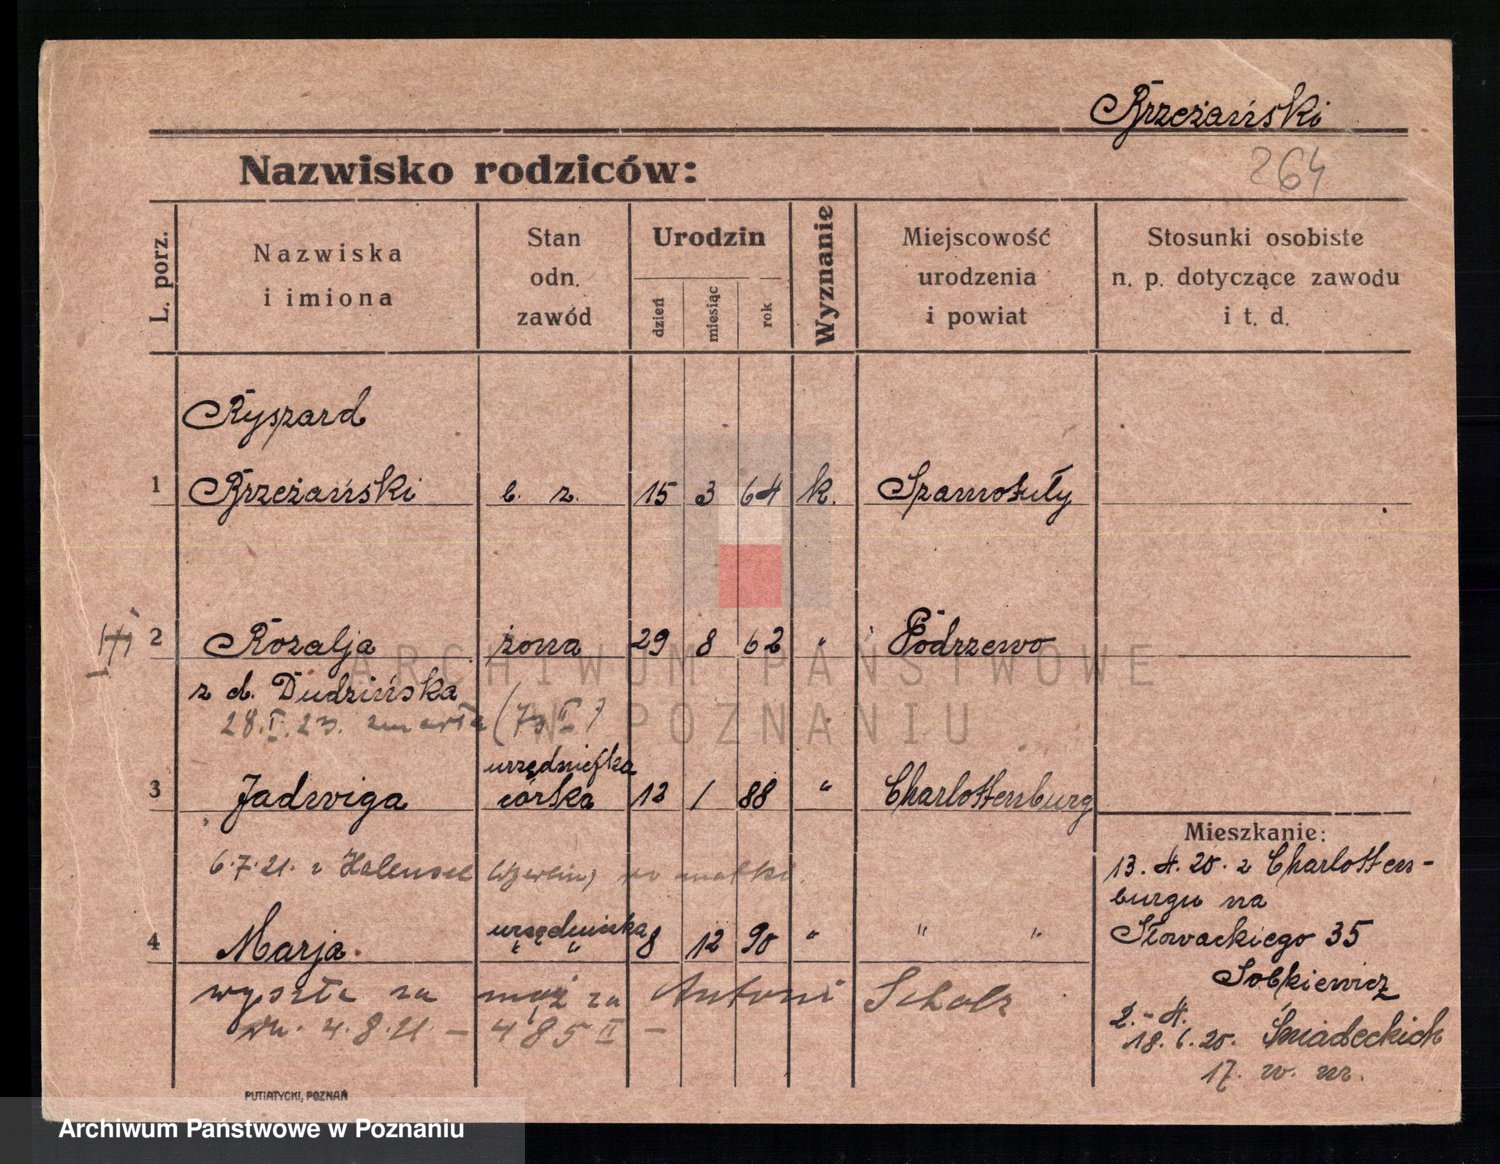 Brzeżański
264
Nazwisko rodziców:
L. porz.
Nazwiska i imiona
Stan odn. zawód
Urodzin
dzień
miesiąc
rok
Wyznanie
Miejscowość urodzenia i powiat
Stosunki osobiste n. p. dotyczące zawodu i t. d.
Ryszard
1 Brzeżański b. z. 15 3 64 k. Szamotuły
2 Rozalja żona 29 8 62 " Podrzewo
z d. Dudzińska
28.I.23. zmarła (73 II)
urzędniczka
3 Jadwiga córka 12 1 88 " Charlottenburg
6.7.21. z Halensee (Berlin) do matki.
urzędniczka
4 Marja " " 8 12 90 " " "
wyszła za mąż za Antoni Scholz
dn. 4.8.21 – 485 II –
Mieszkanie:
13. 4. 20. z Charlotten-
burgu na
Słowackiego 35
Sobkiewicz
2. - 4.
18. 6. 20. Śniadeckich
17. w. m.
PUTIATYCKI, POZNAŃ
ARCHIWUM PAŃSTWOWE
W POZNANIU
Archiwum Państwowe w Poznaniu